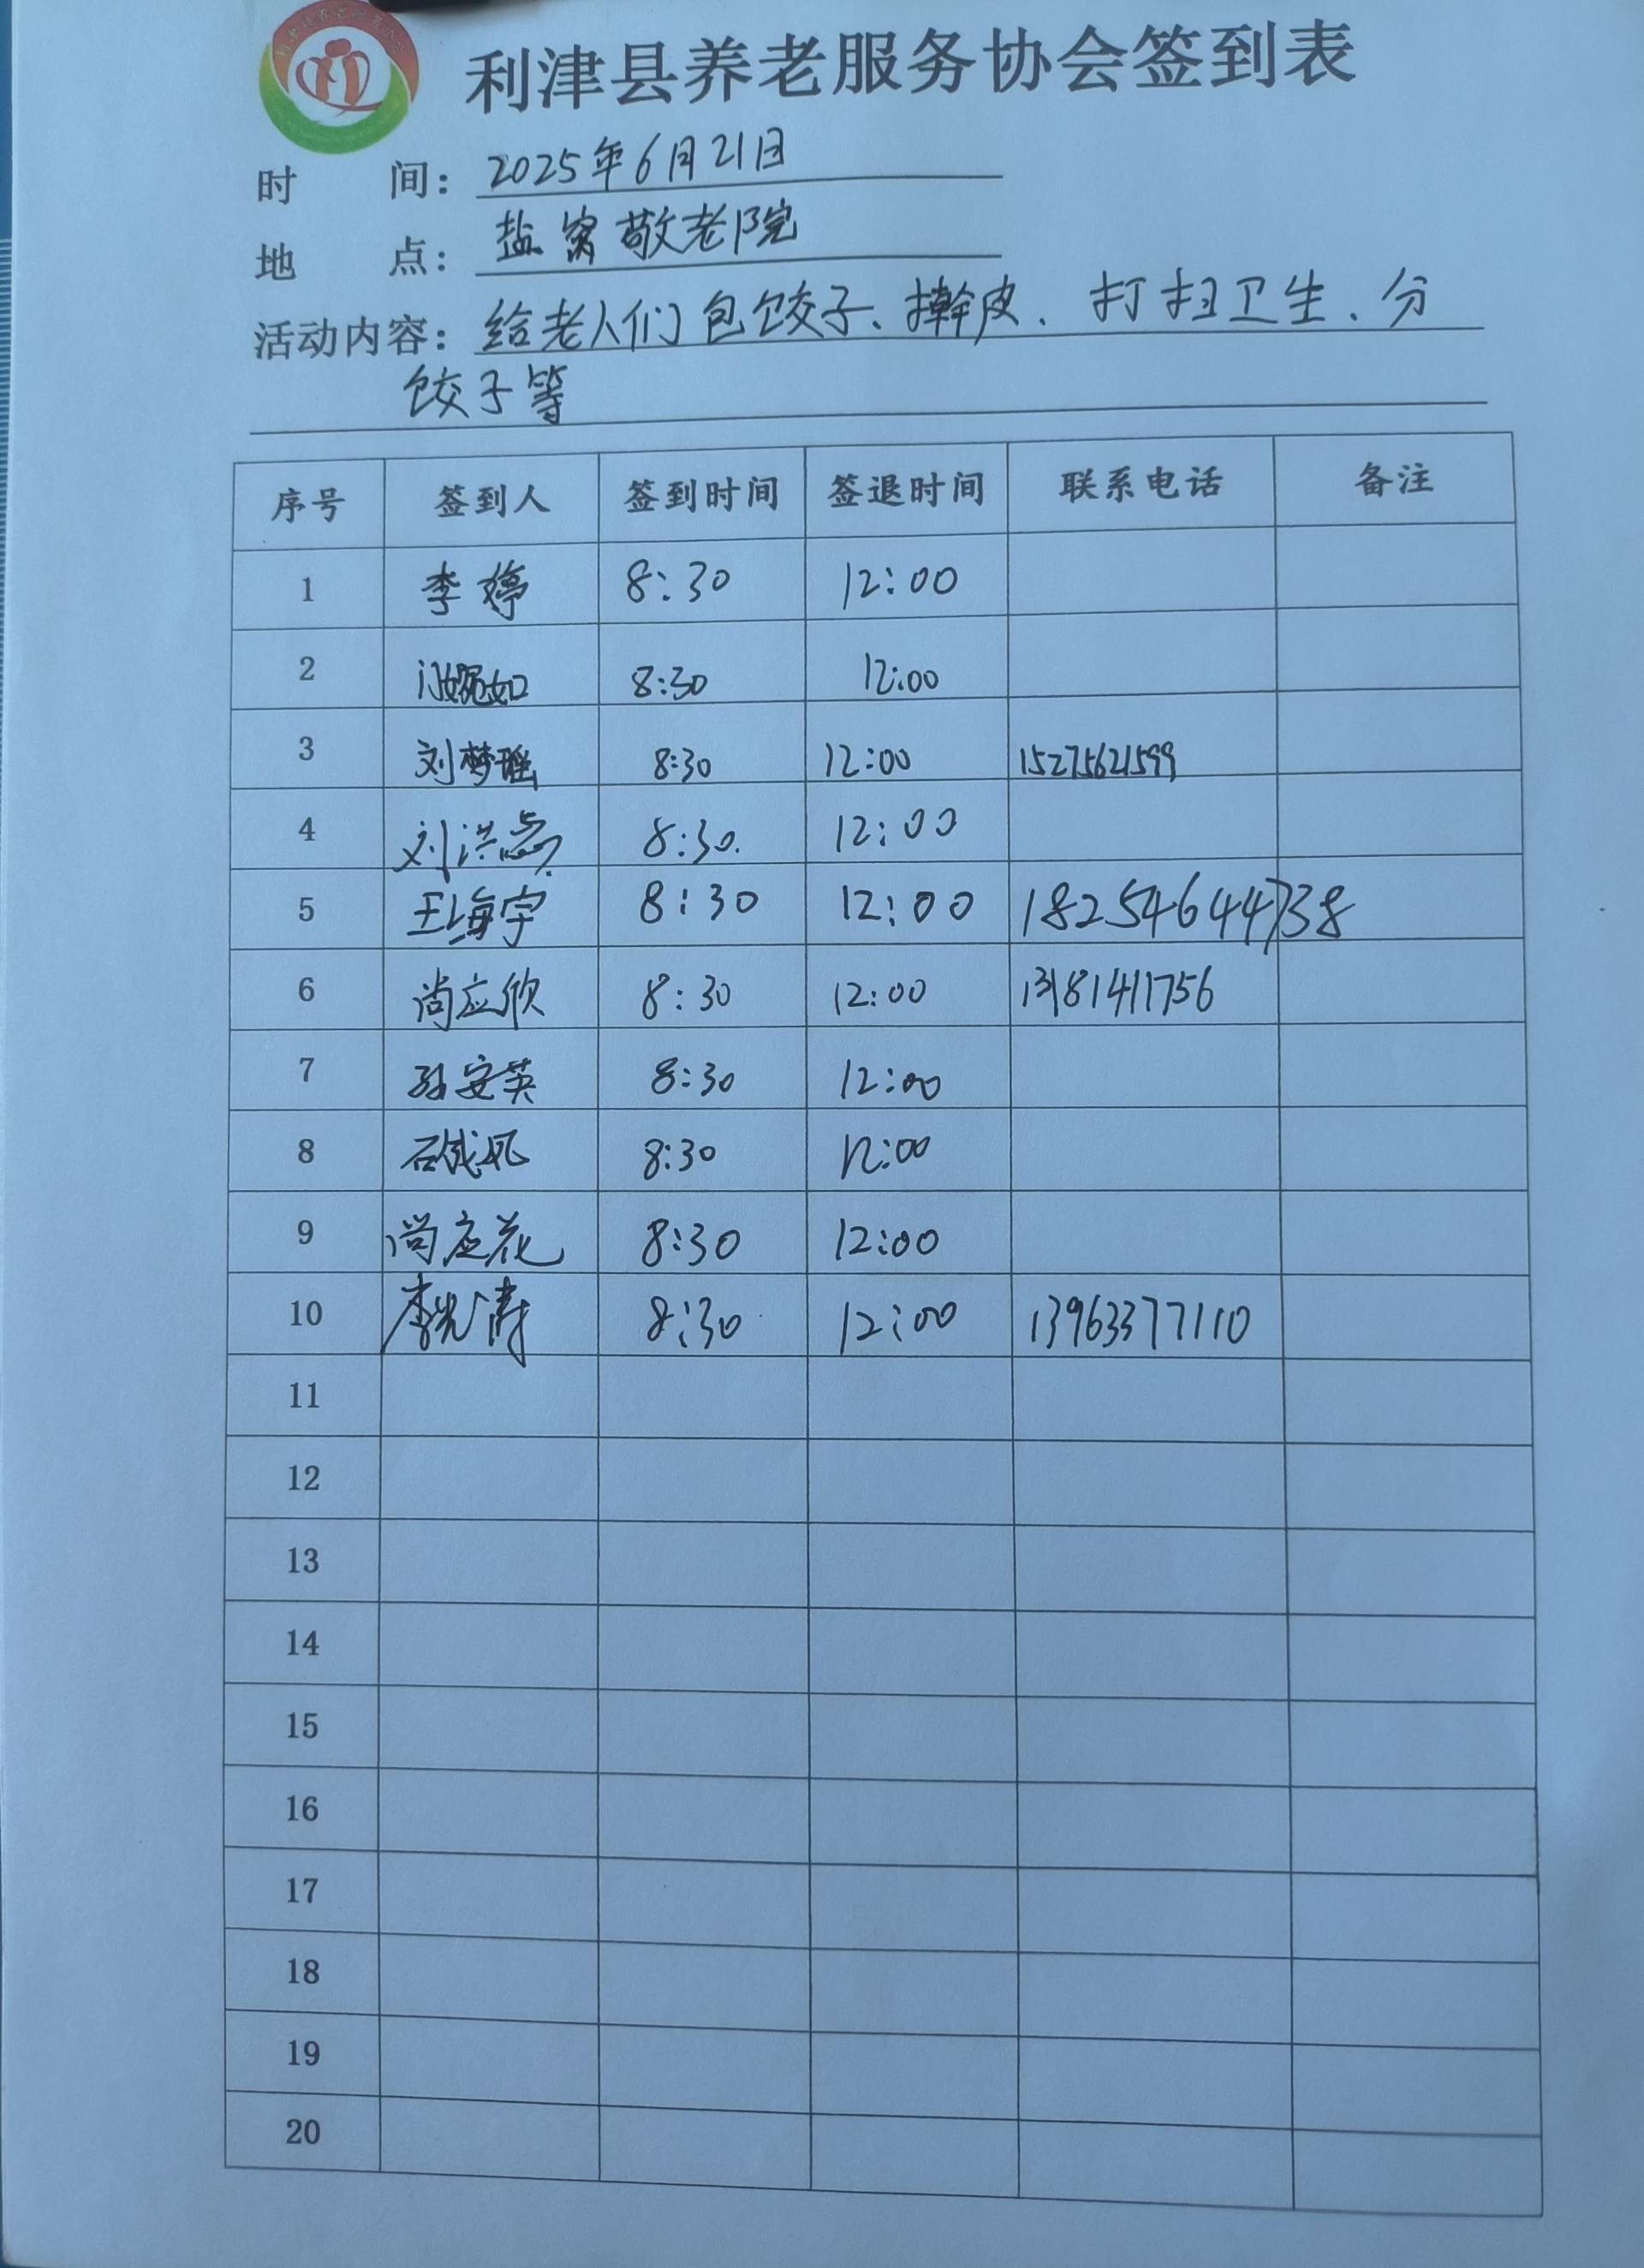 利津县养老服务协会签到表
时 间: 2025年6月21日
地 点: 盐窝敬老院
活动内容: 给老人们包饺子、擀皮、打扫卫生、分
饺子等
序号 签到人 签到时间 签退时间 联系电话 备注
1 李婷 8:30 12:00
2 8:30 12:00
3 刘梦瑶 8:30 12:00 15275621599
4 刘洪 8:30. 12:00
5 王海宇 8:30 12:00 18254644738
6 尚应欣 8:30 12:00 13181411756
7 孙安英 8:30 12:00
8 8:30 12:00
9 尚应花 8:30 12:00
10 李光涛 8:30 12:00 13963377110
11
12
13
14
15
16
17
18
19
20